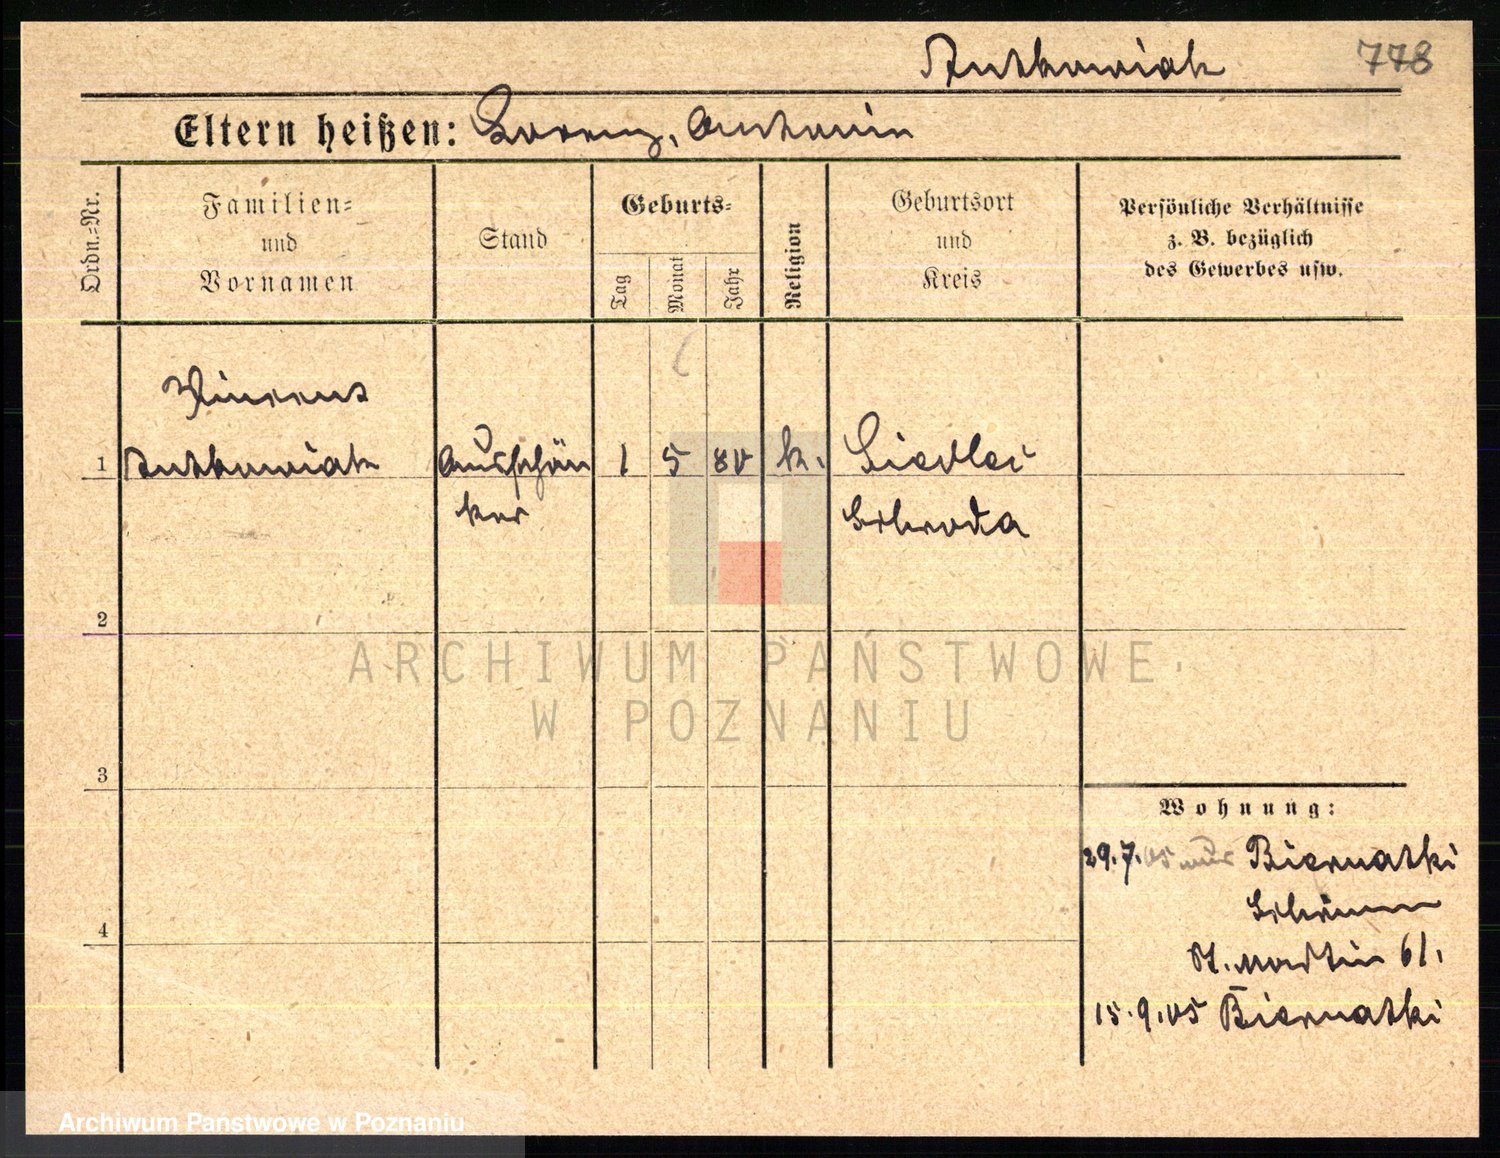 Antkowiak 778
Eltern heißen: Lorenz, Antonin
Ordn.=Nr.
Familien=
und
Vornamen
Stand
Geburts=
Tag
Monat
Jahr
Religion
Geburtsort
und
Kreis
Persönliche Verhältnisse
z. B. bezüglich
des Gewerbes usw.
Vincent
1 Antkowiak Ausschän 1 5 80 k. Siedlec
ker Schroda
2
3
4
ARCHIWUM PAŃSTWOWE
W POZNANIU
Wohnung:
29.7.05 Biernatki
Schrimm
St. Martin 61.
15.9.05 Biernatki
Archiwum Państwowe w Poznaniu